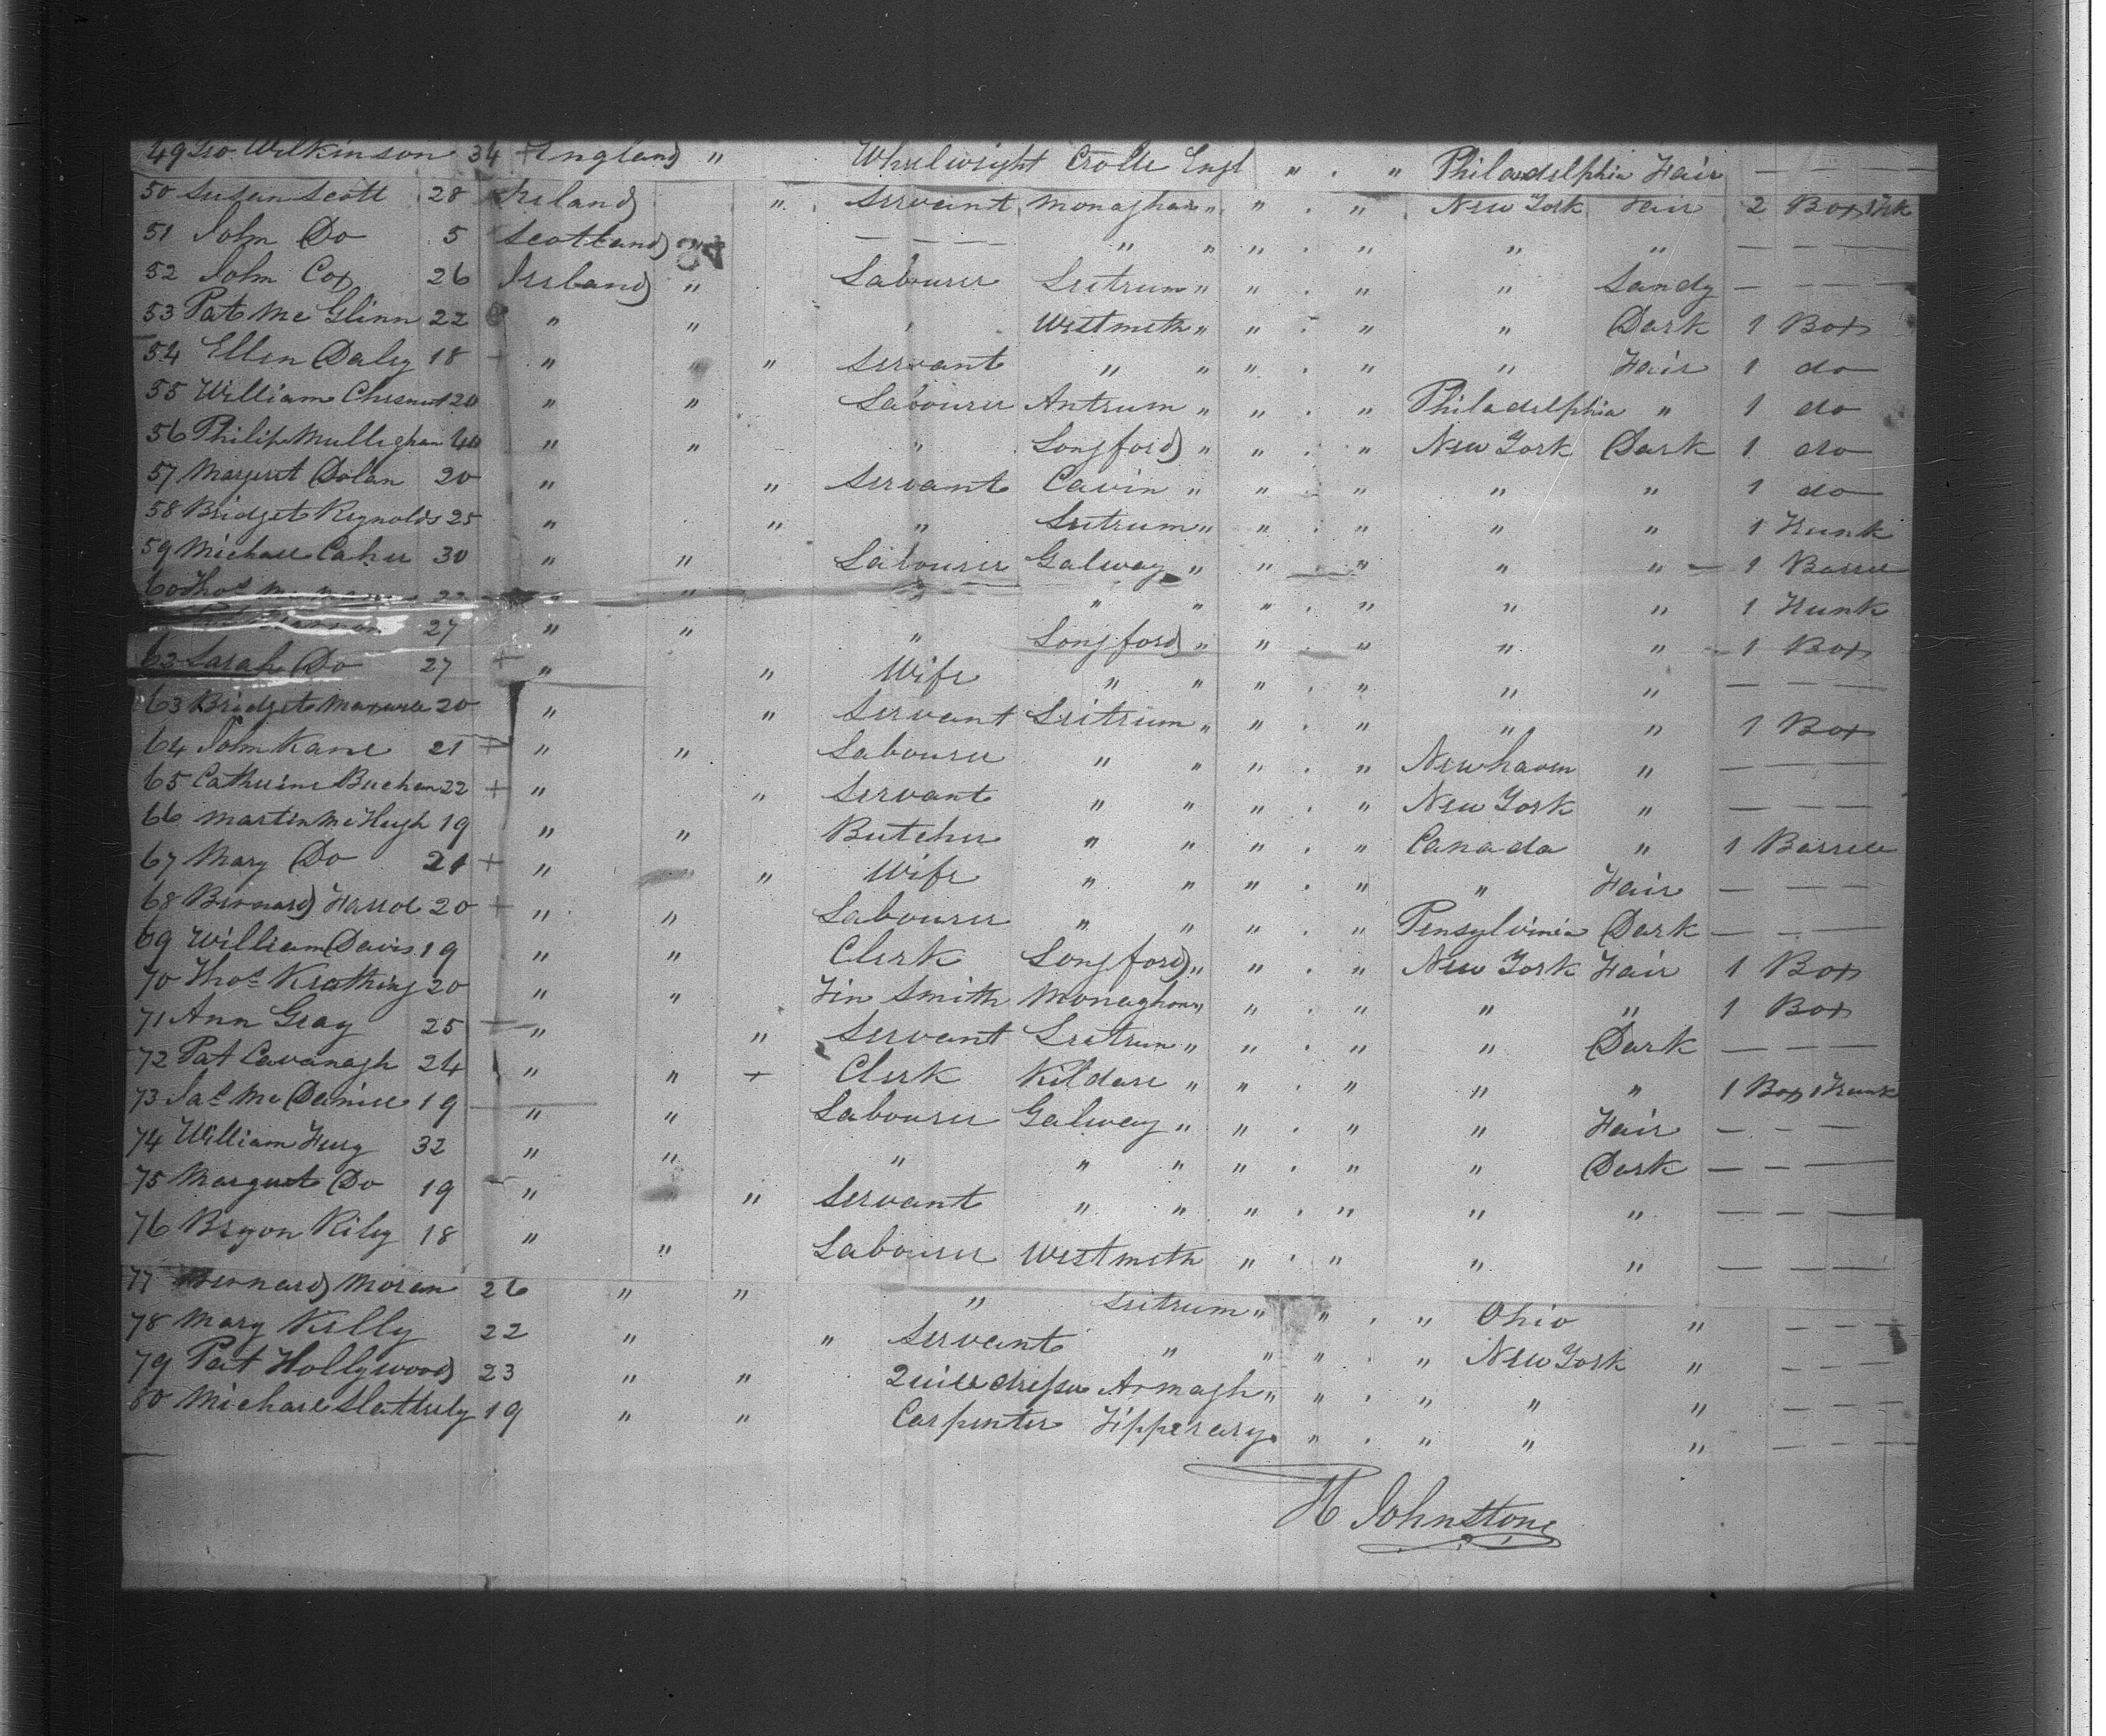 49 Geo Wilkinson 34 + England " Whelwright Crolle Engl " . " Philadelphia Fair — — — —
50 Susan Scott 28 Ireland " Servant Monaghan " " . " New York Fair 2 Box
51 John Do 5 Scotland — — — — " " " . " " " — — — —
52 John Cox 26 Ireland " Labourer Leitrum " " . " " Sandy — — — —
53 Pat Mc Glinn 22 " " " Westmeth " " . " " Dark 1 Box
54 Ellen Daley 18 " " Servant " " " . " " Fair 1 do
55 William Chesnut 20 " " Labourer Antrum " " . " Philadelphia " 1 do
56 Philip Mullighan 40 " " " Longford " " . " New York Dark 1 do
57 Margeret Dolan 20 " " Servant Cavin " " . " " " 1 do
58 Bridget Reynolds 25 " " " Leitrum " " . " " " 1 Trunk
59 Michael Caher 30 " " Labourer Galway " " . " " " 1 Barrel
60 Thos " " " " " " . " " " 1 Trunk
27 " " " Longford " " . " " " 1 Box
62 Sarah Do 27 + " " Wife " " " . " " " — — — —
63 Bridget 20 " " Servant Leitrium " " . " " " 1 Box
64 John Kane 21 + " " Labourer " " " . " Newhaven " — — — —
65 Catherine Buchan 22 + " " Servant " " " . " New York " — — — —
66 Martin Mc Hugh 19 " " Butcher " " " . " Canada " 1 Barrell
67 Mary Do 21 + " " Wife " " " . " " Fair — — —
68 Bernard Farrol 20 + " " Labourer " " " . " Pensylvinia Dark — — —
69 William Davis 19 " " Clerk Longford " " . " New York Fair 1 Box
70 Thos Keathing 20 " " Tin Smith Monaghan " " . " " " 1 Box
71 Ann Gray 25 " " Servant Leitrum " " . " " Dark — — — —
72 Pat Cavanagh 24 " " + Clerk Kildare " " . " " " 1 Box 1 Trunk
73 Jas Mc Daniel 19 " " Labourer Galway " " . " " Fair — — —
74 William Fury 32 " " " " " " . " " Dark — — —
75 Marguet Do 19 " " Servant " " " . " " " — — —
76 Bryon Riley 18 " " Labourer Westmeth " . " " " — — —
77 Bernard Moran 26 " " " Leitrum " " . " Ohio " — — —
78 Mary Kelly 22 " " Servant " " " . " New York " — — —
79 Pat Hollywood 23 " " Quill dresser Armagh " " . " " " — — —
80 Michael Slattrely 19 " " Carpenter Tipperary " " . " " " — — —
H Johnstone